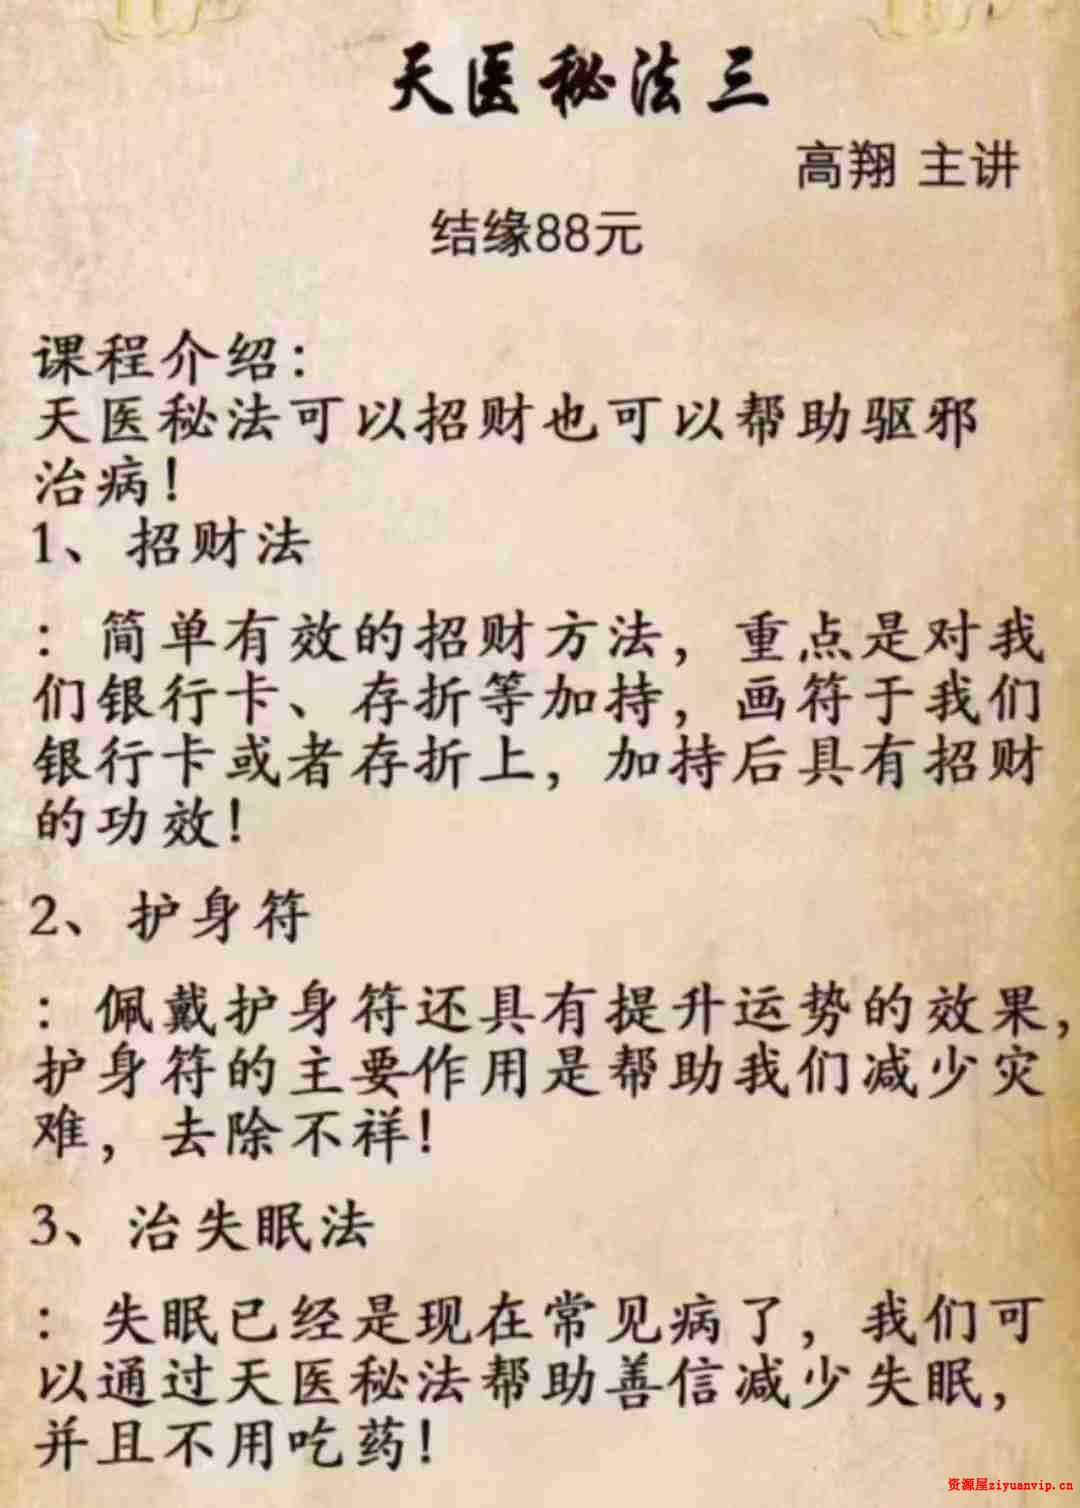 天医秘法三
高翔 主讲
结缘88元
课程介绍：
天医秘法可以招财也可以帮助驱邪
治病！
1、招财法
：简单有效的招财方法，重点是对我
们银行卡、存折等加持，画符于我们
银行卡或者存折上，加持后具有招财
的功效！
2、护身符
：佩戴护身符还具有提升运势的效果，
护身符的主要作用是帮助我们减少灾
难，去除不祥！
3、治失眠法
：失眠已经是现在常见病了，我们可
以通过天医秘法帮助善信减少失眠，
并且不用吃药！
资源屋ziyuanvip.cn